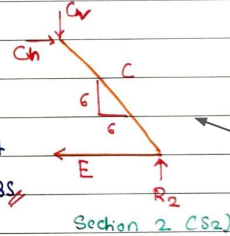 Cv
Ch
C
6
6
E
R2
Section 2 (S2)